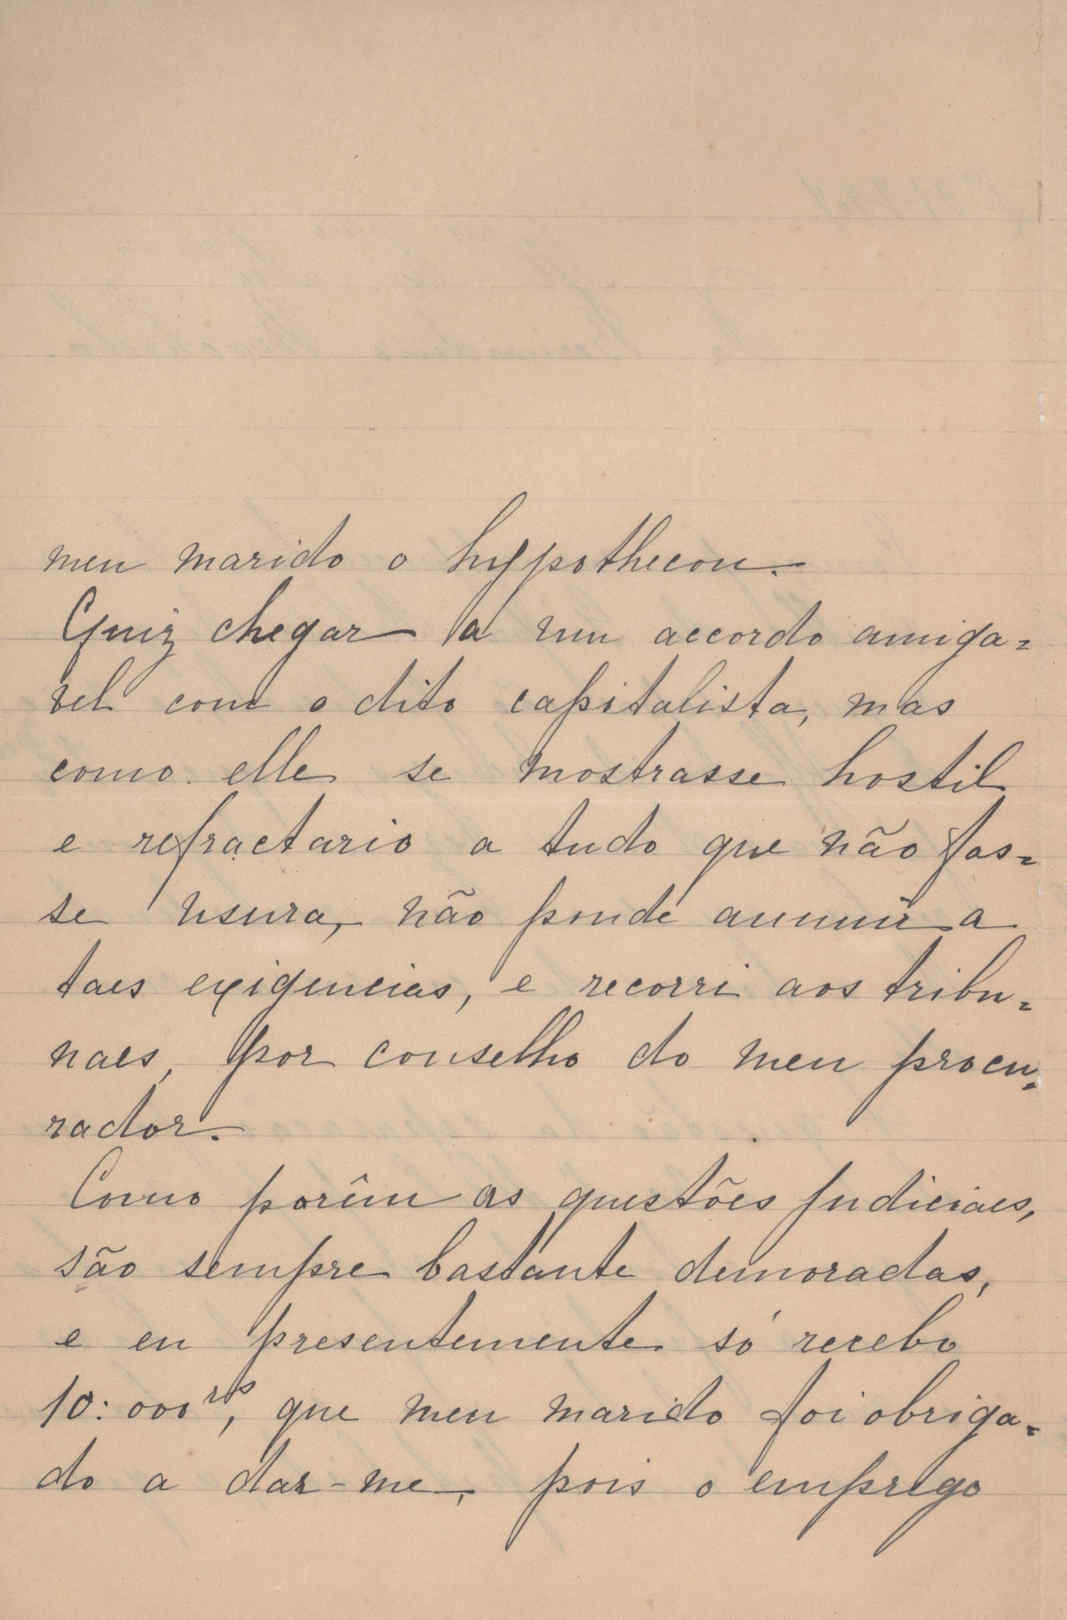 meu marido o hypothecou.
Quiz chegar a um accordo amiga=
vel com o dito capitalista, mas
como elle se mostrasse hostil
e refractario a tudo que não fos=
se usura, não poude annuir a
taes exigencias, e recorri aos tribu=
naes, por conselho do meu procu=
rador.
Como porêm as questões judiciaes,
são sempre bastante demoradas,
e eu presentemente só recebo
10:000rs, que meu marido foi obriga=
do a dar-me, pois o emprego